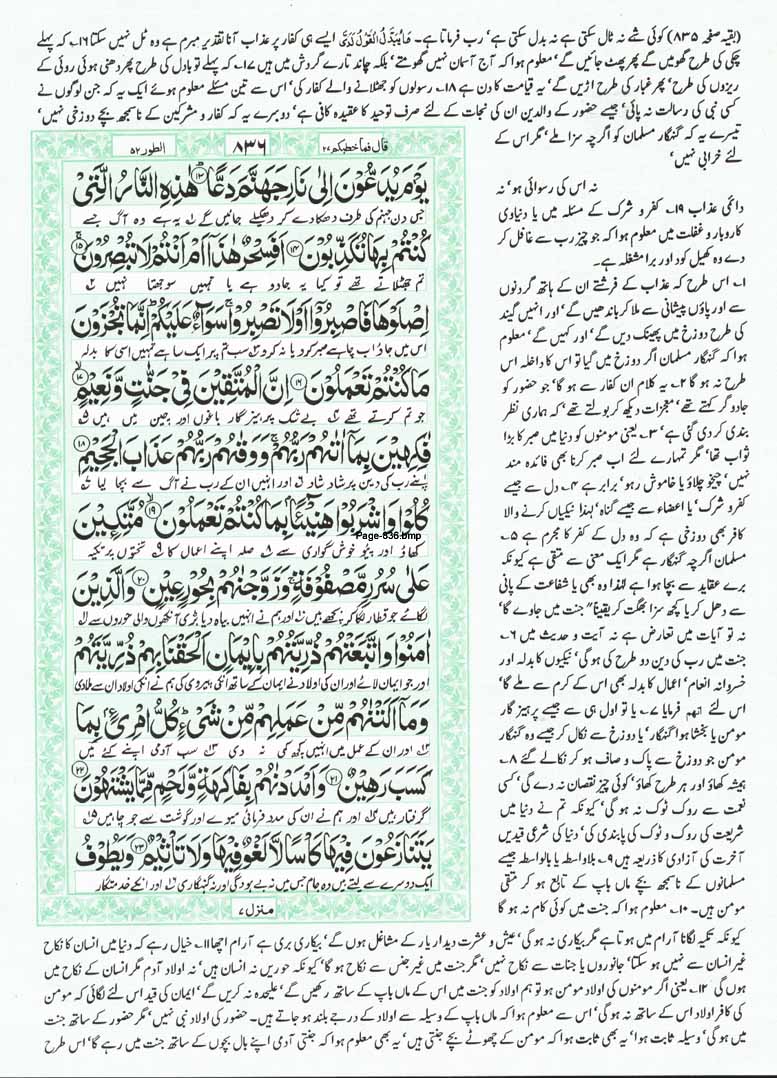 (بقیہ صفحہ ۸۳۵) کوئی شے نہ ٹال سکتی ہے نہ بدل سکتی ہے' رب فرماتا ہے۔ مَا یُبَدَّلُ الْقَوْلُ لَدَیَّ ایسے ہی کفار پر عذاب آنا تقدیر مبرم ہے وہ ٹل نہیں سکتا ۱۶۔ کہ پہلے
چکی کی طرح گھومیں گے پھر پھٹ جائیں گے' معلوم ہوا کہ آج آسمان نہیں گھومتے' بلکہ چاند تارے گردش میں ہیں ۱۷۔ کہ پہلے تو بادل کی طرح پھر دھنی ہوئی روئی کے
ریزوں کی طرح' پھر غبار کی طرح اڑیں گے' یہ قیامت کا دن ہے ۱۸۔ رسولوں کو جھٹلانے والے کفار کی' اس سے تین مسئلے معلوم ہوئے ایک یہ کہ جن لوگوں نے
کسی نبی کی رسالت نہ پائی' جیسے حضور کے والدین ان کی نجات کے لئے صرف توحید کا عقیدہ کافی ہے' دوسرے یہ کہ کفار و مشرکین کے ناسمجھ بچے دوزخی نہیں'
تیسرے یہ کہ گنہگار مسلمان کو اگرچہ سزا ملے' مگر اس کے
لئے خرابی نہیں'
نہ اس کی رسوائی ہو' نہ
دائمی عذاب ۱۹۔ کفر و شرک کے مسئلہ میں یا دنیاوی
کاروبار و غفلت میں معلوم ہوا کہ جو چیز رب سے غافل کر
دے وہ کھیل کود اور برا مشغلہ ہے۔
۱۔ اس طرح کہ عذاب کے فرشتے ان کے ہاتھ گردنوں
سے اور پاؤں پیشانی سے ملا کر باندھیں گے' اور انہیں گیند
کی طرح دوزخ میں پھینک دیں گے' اور کہیں گے' معلوم
ہوا کہ گنہگار مسلمان اگر دوزخ میں گیا تو اس کا داخلہ اس
طرح نہ ہو گا ۲۔ یہ کلام ان کفار سے ہو گا' جو حضور کو
جادوگر کہتے تھے' معجزات دیکھ کر بولتے تھے' کہ ہماری نظر
بندی کر دی گئی ہے' ۳۔ یعنی مومنوں کو دنیا میں صبر کا بڑا
ثواب تھا' مگر تمہارے لئے اب صبر کرنا بھی فائدہ مند
نہیں' چیخو چلاؤ یا خاموش رہو' برابر ہے ۴۔ دل سے جیسے
کفر و شرک' یا اعضاء سے جیسے گناہ' لہذا نیکیاں کرنے والا
کافر بھی دوزخی ہے کہ وہ دل کے کفر کا مجرم ہے ۵۔
مسلمان اگرچہ گنہگار ہے مگر ایک معنی سے متقی ہے کیونکہ
برے عقاید سے بچا ہوا ہے لہذا وہ بھی یا شفاعت کے پانی
سے دھل کر یا کچھ سزا بھگت کر یقیناً" جنت میں جاوے گا'
نہ تو آیات میں تعارض ہے نہ آیت و حدیث میں ۶۔
جنت میں رب کی دین دو طرح کی ہو گی' نیکیوں کا بدلہ اور
خسروانہ انعام' اعمال کا بدلہ بھی اس کے کرم سے ملے گا'
اس لئے اٰتٰھم فرمایا ۷۔ یا تو اول ہی سے جیسے پرہیز گار
مومن یا بخشا ہوا گنہگار' یا دوزخ سے نکال کر جیسے وہ گنہگار
مومن جو دوزخ سے پاک و صاف ہو کر نکالے گئے ۸۔
ہمیشہ کھاؤ اور ہر طرح کھاؤ' کوئی چیز نقصان نہ دے گی' کسی
نعمت سے روک ٹوک نہ ہو گی' کیونکہ تم نے دنیا میں
شریعت کی روک و ٹوک کی پابندی کی' دنیا کی شرعی قیدیں
آخرت کی آزادی کا ذریعہ ہیں ۹۔ بلاواسطہ یا بالواسطہ جیسے
مسلمانوں کے ناسمجھ بچے ماں باپ کے تابع ہو کر متقی
مومن ہیں۔ ۱۰۔ معلوم ہوا کہ جنت میں کوئی کام نہ ہو گا
الطور ۵۲
۸۳۶
قال فما خطبکم ۲۷
یَوْمَ یُدَعُّوْنَ اِلٰی نَارِ جَهَنَّمَ دَعًّا ۱۳ هٰذِهِ النَّارُ الَّتِیْ
جس دن جہنم کی طرف دھکا دے کر دھکیلے جائیں گے یہ ہے وہ آگ جسے
كُنْتُمْ بِهَا تُكَذِّبُوْنَ ۱۴ اَفَسِحْرٌ هٰذَا اَمْ اَنْتُمْ لَا تُبْصِرُوْنَ ۱۵
تم جھٹلاتے تھے تو کیا یہ جادو ہے یا تمہیں سوجھتا نہیں
اِصْلَوْهَا فَاصْبِرُوْا اَوْ لَا تَصْبِرُوْا سَوَآءٌ عَلَیْكُمْ اِنَّمَا تُجْزَوْنَ
اس میں جاؤ اب چاہے صبر کرو یا نہ کرو سب تم پر ایک سا ہے تمہیں اسی کا بدلہ
مَا كُنْتُمْ تَعْمَلُوْنَ ۱۶ اِنَّ الْمُتَّقِیْنَ فِیْ جَنّٰتٍ وَّنَعِیْمٍ ۱۷
جو تم کرتے تھے بے شک پرہیزگار باغوں اور چین میں ہیں
فٰكِهِیْنَ بِمَاۤ اٰتٰهُمْ رَبُّهُمْ وَوَقٰهُمْ رَبُّهُمْ عَذَابَ الْجَحِیْمِ ۱۸
اپنے رب کی دین پر شاد شاد اور انہیں ان کے رب نے آگ کے عذاب سے بچا لیا
كُلُوْا وَاشْرَبُوْا هَنِیْٓـًٔۢا بِمَا كُنْتُمْ تَعْمَلُوْنَ ۱۹ مُتَّكِـِٕیْنَ
Page-836.bmp
کھاؤ اور پیؤ خوشگواری سے صلہ اپنے اعمال کا تختوں پر تکیہ
عَلٰی سُرُرٍ مَّصْفُوْفَةٍ وَزَوَّجْنٰهُمْ بِحُوْرٍ عِیْنٍ ۲۰ وَالَّذِیْنَ
لگائے جو قطار لگا کر بچھے ہیں اور ہم نے انہیں بیاہ دیا بڑی آنکھوں والی حوروں سے
اٰمَنُوْا وَاتَّبَعَتْهُمْ ذُرِّیَّتُهُمْ بِاِیْمَانٍ اَلْحَقْنَا بِهِمْ ذُرِّیَّتَهُمْ
اور جو ایمان لائے اور ان کی اولاد نے ایمان کے ساتھ انکی پیروی کی ہم نے انکی اولاد ان سے ملا دی
وَمَاۤ اَلَتْنٰهُمْ مِّنْ عَمَلِهِمْ مِّنْ شَیْءٍ كُلُّ امْرِئٍۭ بِمَا
اور ان کے عمل میں انہیں کچھ کمی نہ دی سب آدمی اپنے کئے میں
كَسَبَ رَهِیْنٌ ۲۱ وَاَمْدَدْنٰهُمْ بِفَاكِهَةٍ وَّلَحْمٍ مِّمَّا یَشْتَهُوْنَ ۲۲
گرفتار ہیں اور ہم نے ان کی مدد فرمائی میوے اور گوشت سے جو چاہیں
یَتَنَازَعُوْنَ فِیْهَا كَاْسًا لَّا لَغْوٌ فِیْهَا وَلَا تَاْثِیْمٌ ۲۳ وَیَطُوْفُ
ایک دوسرے سے لیتے ہیں وہ جام جس میں نہ بے ہودگی اور نہ گنہگاری اور انکے خدمتگار
منزل ۷
کیونکہ تکیہ لگانا آرام میں ہوتا ہے مگر بیکاری نہ ہو گی' عیش و عشرت دیدار یار کے مشاغل ہوں گے' بیکاری بری ہے آرام اچھا ۱۱۔ خیال رہے کہ دنیا میں انسان کا نکاح
غیر انسان سے نہیں ہو سکتا' جانوروں یا جنات سے نکاح نہیں' مگر جنت میں غیر جنس سے نکاح ہو گا' کیونکہ حوریں نہ انسان ہیں' نہ اولاد آدم مگر انسان کے نکاح میں
ہوں گی ۱۲۔ یعنی اگر مومنوں کی اولاد مومن ہو تو ہم اولاد کو جنت میں اس کے ماں باپ کے ساتھ رکھیں گے' علیحدہ نہ کریں گے' ایمان کی قید اس لئے لگائی کہ مومن
کی کافر اولاد اس کے ساتھ نہ ہو گی' اس سے معلوم ہوا کہ ماں باپ کے وسیلہ سے اولاد کے درجے بلند ہو جاتے ہیں۔ حضور کی اولاد نبی نہیں' مگر حضور کے ساتھ جنت
میں ہو گی' وسیلہ ثابت ہوا' یہ بھی ثابت ہوا کہ مومن کے چھوٹے بچے جنتی ہیں' یہ بھی معلوم ہوا کہ جنتی آدمی اپنے بال بچوں کے ساتھ جنت میں رہے گا' اس طرح